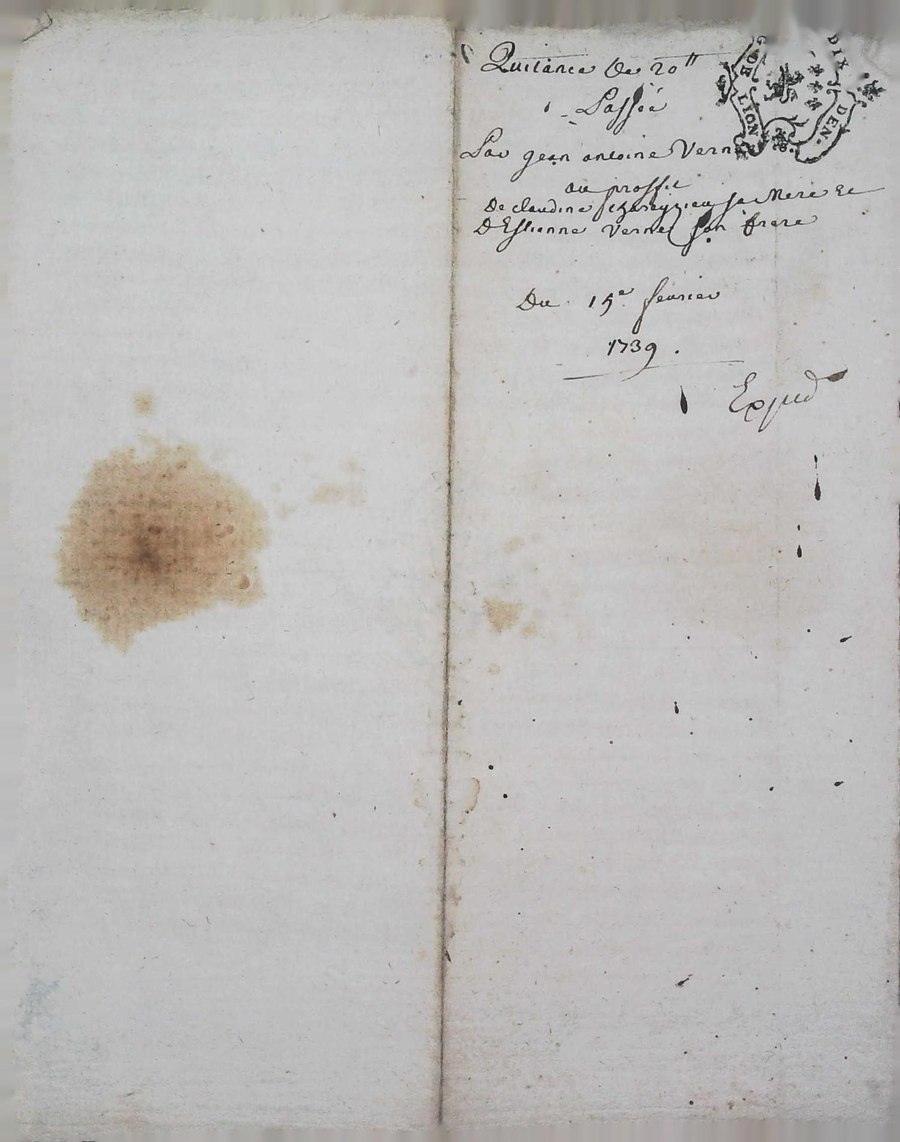 Quitance De 20ᵗᵗ
Passée
Par jean antoine Verne
au proffit
De claudine sa Mere Et
D'Estienne Verne son frere
Du 15ᵉ fevrier
1739.
Exped
G. DE LION
DIX DEN.